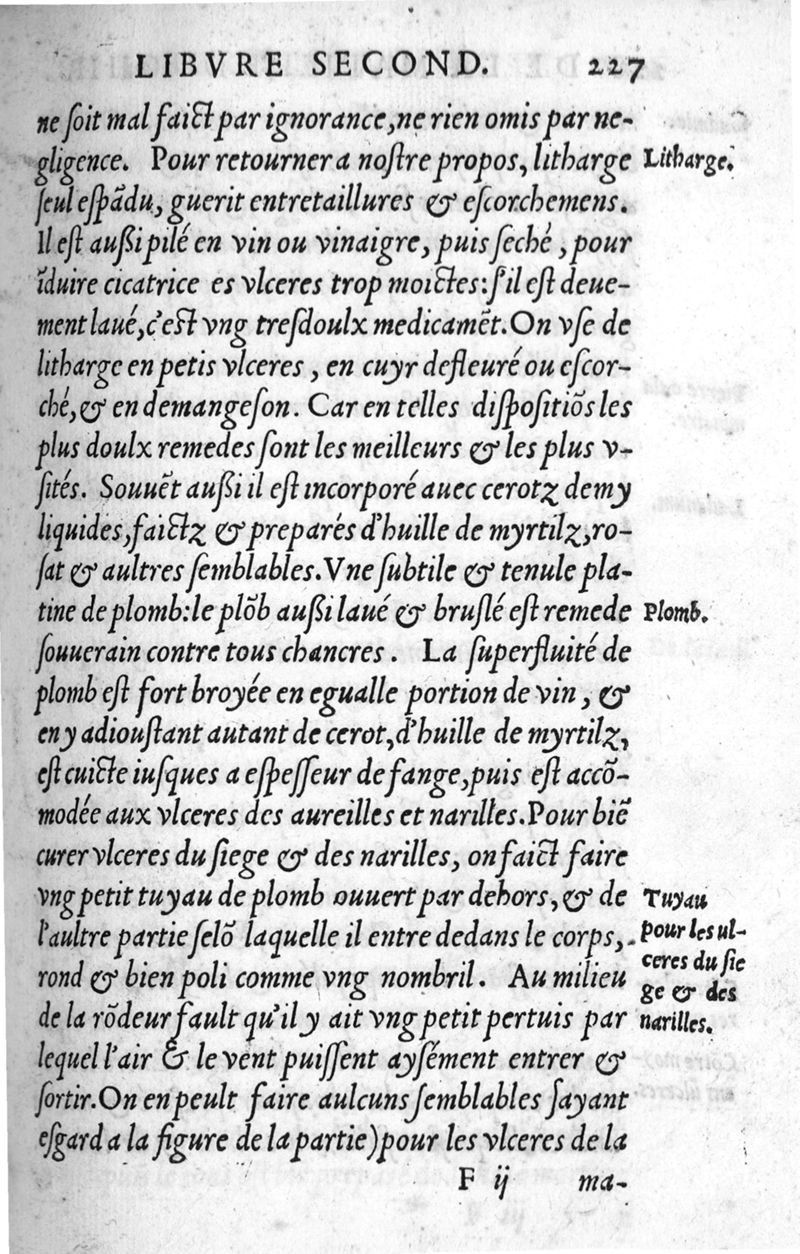 LIBVRE SECOND. 227
ne ſoit mal faict par ignorance, ne rien omis par ne-
gligence. Pour retourner a noſtre propos, litharge
Litharge.
ſeul eſpādu, guerit entretaillures & eſcorchemens.
Il eſt auſsi pilé en vin ou vinaigre, puis ſeché, pour
īduire cicatrice es vlceres trop moictes: ſ'il eſt deue-
ment laué, c'eſt vng treſdoulx medicamēt. On vſe de
litharge en petis vlceres, en cuyr defleuré ou eſcor-
ché, & en demangeſon. Car en telles diſpoſitiōs les
plus doulx remedes ſont les meilleurs & les plus v-
ſités. Souuēt auſsi il eſt incorporé auec cerotz demy
liquides, faictz & preparés d'huille de myrtilz, ro-
ſat & aultres ſemblables. Vne ſubtile & tenule pla-
tine de plomb: le plōb auſsi laué & bruſlé eſt remede
Plomb.
ſouuerain contre tous chancres. La ſuperfluité de
plomb eſt fort broyée en egualle portion de vin, &
en y adiouſtant autant de cerot, d'huille de myrtilz,
eſt cuicte iuſques a eſpeſſeur de fange, puis eſt accō-
modée aux vlceres des aureilles et narilles. Pour biē
curer vlceres du ſiege & des narilles, on faict faire
vng petit tuyau de plomb ouuert par dehors, & de
l'aultre partie ſelō laquelle il entre dedans le corps,
rond & bien poli comme vng nombril. Au milieu
Tuyau
pour les ul-
ceres du ſie
ge & des
narilles.
de la rōdeur fault qu'il y ait vng petit pertuis par
lequel l'air & le vent puiſſent ayſément entrer &
ſortir. On en peult faire aulcuns ſemblables ſayant
eſgard a la figure de la partie) pour les vlceres de la
F ij ma-